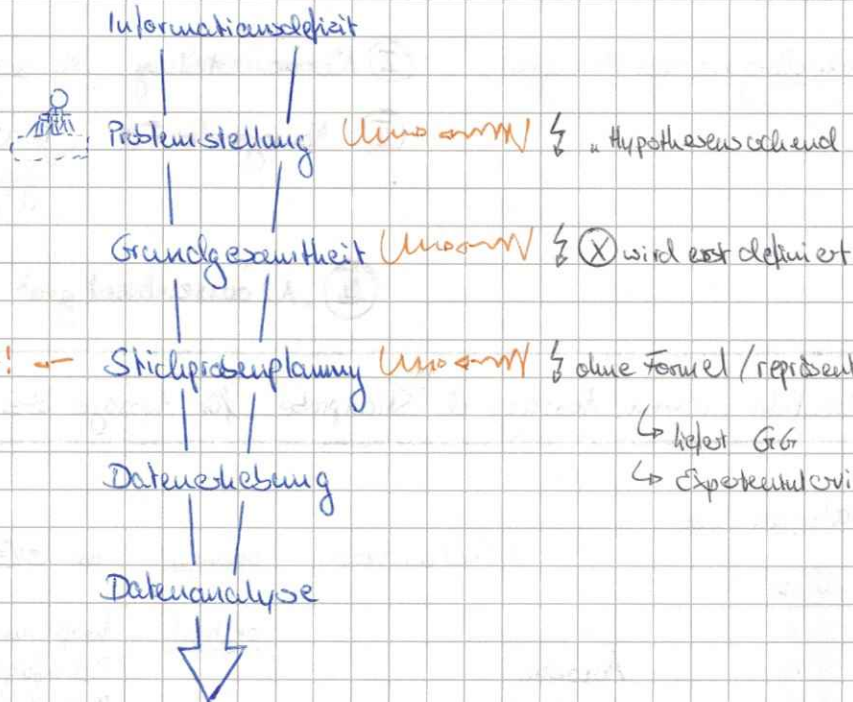 Informationsdefizit
Problemstellung ↯ "Hypothesensuchend
Grundgesamtheit ↯ Ⓧ wird erst definiert
! ← Stichprobenplanung ↯ ohne Formel / repräsent
↳ liefert GG
↳ Expertenintervi
Datenerhebung
Datenanalyse